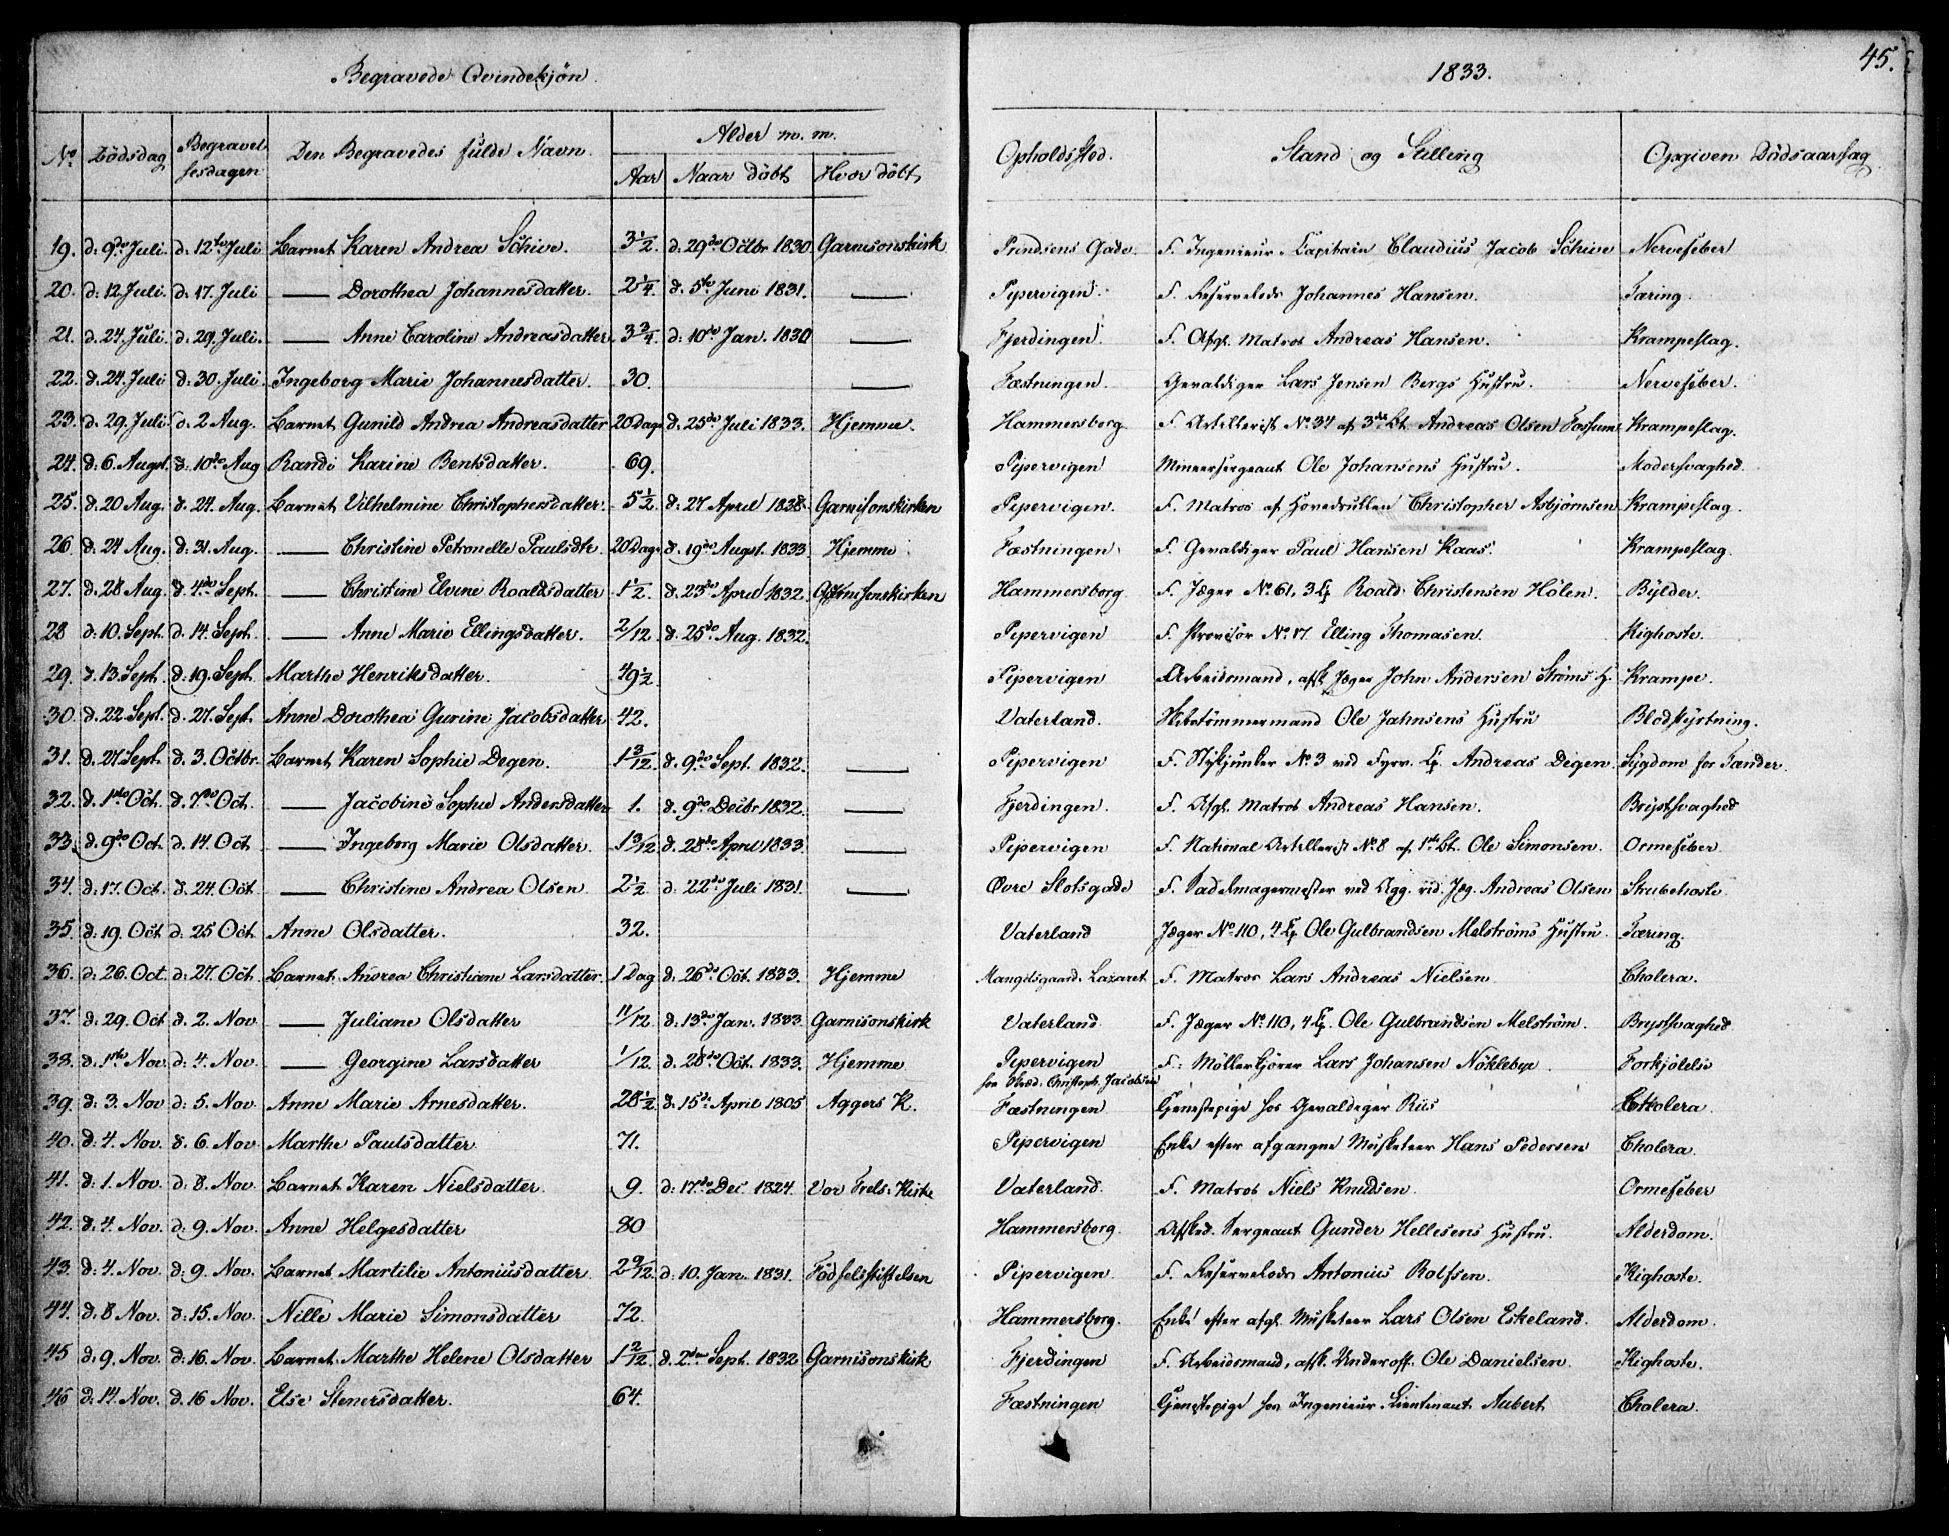 Begravede Qvindekjön.
1833.
45.
No. Dödsdag Begravelsesdagen Den Begravedes fulde Navn. Alder m. m. Aar Naar döbt Hvor döbt Opholdssted. Stand og Stilling Opgiven Dödsaarsag
19. d. 9de Juli. d. 12te Juli Barnet Karen Andrea Schive. 3 1/2. d. 29de Octbr 1830. Garnisonskirk Prindsens Gade. F. Ingenieur-Capitain Claudius Jacob Schive Nervefeber
20. d: 12. Juli. d. 17. Juli —— Dorothea Johannesdatter. 2 1/4. d. 5te Juni 1831. —— Pipervigen. F. Reservelods Johannes Hansen. Tæring.
21. d. 24. Juli. d. 29. Juli. —— Anne Caroline Andreasdatter 3 3/4. d: 10de Jan. 1830 —— Fjerdingen. F. Afgl. Matros Andreas Hansen. Krampeslag.
22. d. 24. Juli d. 30. Juli. Ingeborg Marie Johannesdatter. 30. —— Fæstningen. Gevaldiger Lars Jensen Bergs Hustru. Nervefeber.
23. d. 29. Juli d. 2 Aug. Barnet Gunild Andrea Andreasdatter 20 Dage d. 25de Juli 1833. Hjemme. Hammersborg F. Artillerist No. 34 af 3die Bt. Andreas Olsen Fossum Krampeslag.
24. d: 6. Augst. d. 10de Aug Randi Karine Bentsdatter. 69. Pipervigen Mineersergeant Ole Johansens Hustru. Modersvaghed.
25. d. 20 Aug. d. 24. Aug. Barnet Vilhelmine Christophersdatter. 5 1/2. d: 27 April 1828. Garnisonskirken Pipervigen. F. Matros af Hovedrullen Christopher Asbjørnsen Krampeslag.
26 d. 24 Aug. d. 31. Aug. —— Christine Petronelle Paulsdtr. 20 Dage d. 19de Augst. 1833 Hjemme. Fæstningen F. Gevaldiger Paul Hansen Kaas. Krampeslag.
27. d. 28 Aug. d. 4de Sept. —— Christine Elvine Roaldsdatter 1 1/2. d. 23de April 1832. Garnisonskirken Hammersborg F. Jæger No. 61, 3 Cp Roald Christensen Hölen. Bylder.
28 d. 10. Sept. d. 14. Sept. —— Anne Marie Ellingsdatter. 2/12. d. 25de Aug. 1832. Pipervigen F. Provisor No. 17. Elling Thomasen. Kighoste.
29. d. 13. Sept. d. 19. Sept. Marthe Henriksdatter. 49 1/2. Pipervigen Arbeidsmand, afsk. Jæger John Andersen Ströms H. Krampe.
30. d. 22. Sept. d. 27. Sept. Anne Dorothea Gurine Jacobsdatter 42. Vaterland. Skibstömmermand Ole Jahnsens Hustru Blodstyrtning.
31. d. 27. Sept. d. 3. Octbr. Barnet Karen Sophie Degen. 1 3/12. d. 9de Sept. 1832. —— Pipervigen F. Stykjunker No. 3 ved Fyrv. Cp. Andreas Degen. Sygdom for Tænder.
32. d. 1ste Oct. d. 7de Oct. —— Jacobine Sophie Andersdatter 1. d. 9de Decbr 1832. —— Fjerdingen. F. Afgl. Matros Andreas Hansen. Brystsvaghed
33. d. 9de Oct. d. 14. Oct —— Ingeborg Marie Olsdatter. 1 3/12 d. 28de April 1833. —— Pipervigen F. National Artillerist No. 8 af 1ste Bt. Ole Simonsen. Ormefeber.
34. d: 17. Oct. d. 24. Oct. —— Christine Andrea Olsen. 2 1/2 d. 22de Juli 1831. —— Øvre Slotsgade F. Sadelmagermester ved Agg. rid. Jæg. Andreas Olsen Strubehoste.
35. d: 19. Oct d. 25 Oct. Anne Olsdatter. 32. Vaterland Jæger No. 110, 4 Cp Ole Gulbrandsen Melströms Hustru. Tæring.
36. d. 26. Oct. d: 27. Oct. Barnet Andrea Christiane Larsdatter. 1 Dag d. 26de Oct. 1833. Hjemme Mangelsgaards Lazaret F. Matros Lars Andreas Nielsen Cholera.
37. d: 29. Oct d. 2. Nov —— Juliane Olsdatter 11/12. d: 13de Jan. 1833. Garnisonskirk Vaterland. F. Jæger No. 110, 4 Cp. Ole Gulbrandsen Melström. Brystsvaghed
38. d. 1ste Nov. d: 4. Nov. —— Georgine Larsdatter 1/12. d. 28de Oct. 1833. Hjemme Pipervigen F. Möllerkjører Lars Johansen Nökleby. Forkjölelse
hos Skræd. Christoph. Jacobsen
39. d: 3. Nov d: 5. Nov. Anne Marie Arnesdatter. 28 1/2. d. 15de April 1805 Aggers K. Fæstningen Tjenestepige hos Gevaldiger Riis Cholera.
40. d: 4. Nov. d. 6. Nov. Marthe Paulsdatter 71. Pipervigen Enke efter afgangne Musketeer Hans Pedersen Cholera.
41. d: 1. Nov. d: 8. Nov. Barnet Karen Nielsdatter. 9. d: 17de Dec. 1824. Vor Frels: Kirke Vaterland. F. Matros Niels Knudsen. Ormefeber
42. d. 4. Nov. d: 9. Nov. Anne Helgesdatter 80 Hammersborg. Afsked. Sergeant Gunder Hellesens Hustru. Alderdom.
43. d: 4. Nov. d. 9. Nov. Barnet Martilie Antoniusdatter. 2 9/12. d: 10. Jan. 1831. Födselsstiftelsen Pipervigen. F. Reservelods Antonius Rolfsen. Kighoste.
44. d: 8 Nov. d: 15. Nov. Nille Marie Simonsdatter 72. Hammersborg. Enke efter afgl. Musketeer Lars Olsen Eskeland. Alderdom.
45 d: 9. Nov. d: 16. Nov. Barnet Marthe Helene Olsdatter 1 2/12. d. 2den Sept. 1832 Garnisonskirk Fjerdingen F. Arbeidsmand, afsk. Underoff. Ole Danielsen. Kighoste.
46 d: 14. Nov. d. 16 Nov. Else Stenersdatter. 64. Fæstningen Tjenestepige hos Ingenieur-Lieutenant Aubert Cholera.